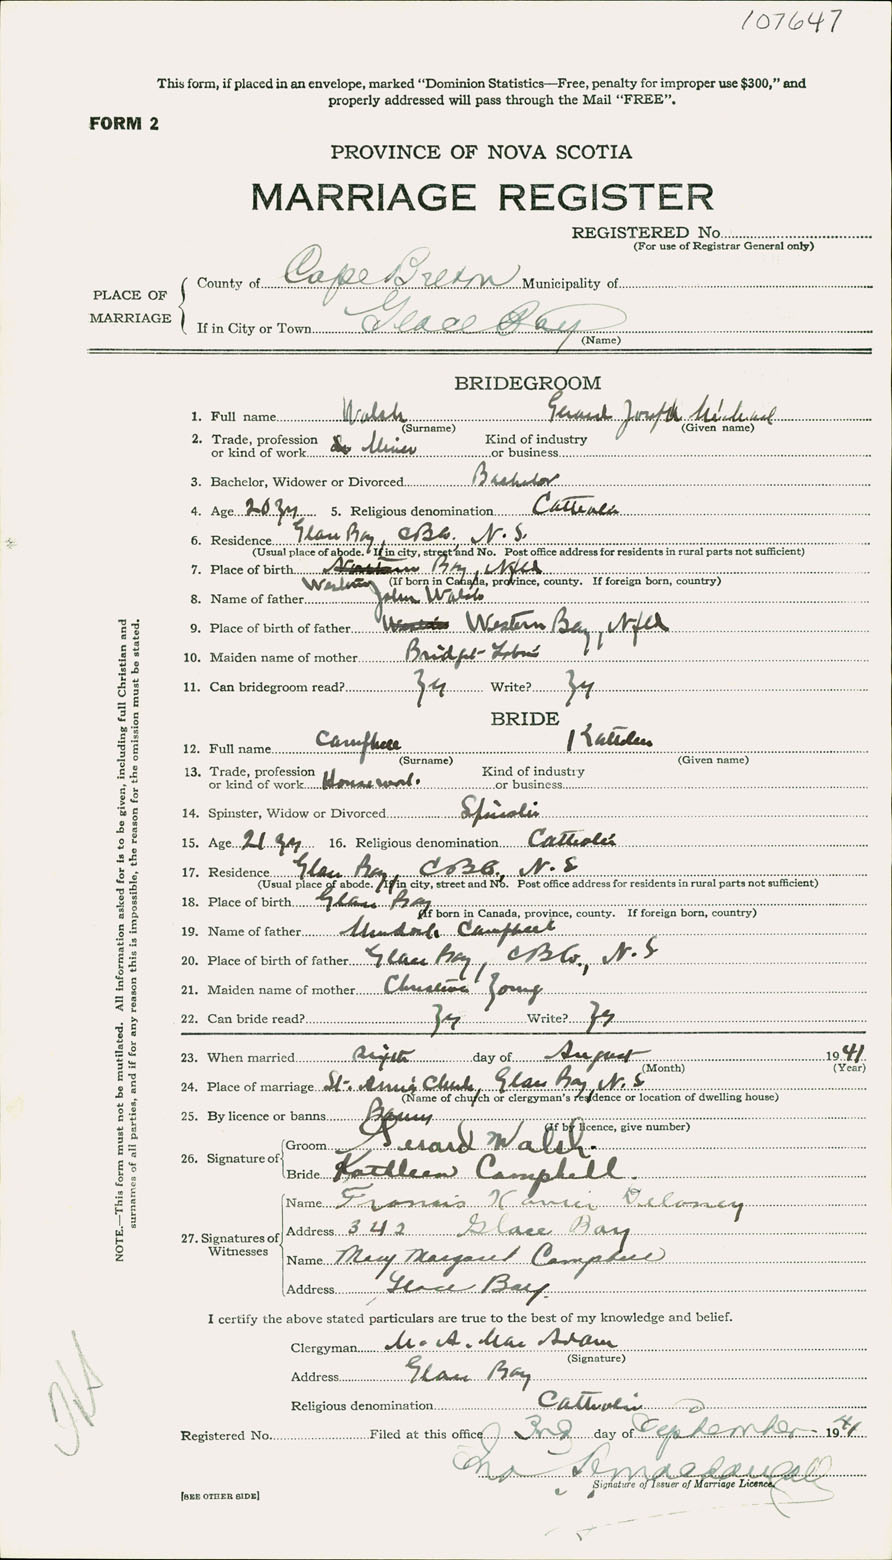 107647
This form, if placed in an envelope, marked “Dominion Statistics—Free, penalty for improper use $300,” and
properly addressed will pass through the Mail “FREE”.
FORM 2
PROVINCE OF NOVA SCOTIA
MARRIAGE REGISTER
REGISTERED No.
(For use of Registrar General only)
PLACE OF MARRIAGE
County of Cape Breton Municipality of
If in City or Town Glace Bay
(Name)
BRIDEGROOM
1. Full name Walsh Gerard Joseph Michael
(Surname) (Given name)
2. Trade, profession or kind of work Miner Kind of industry or business
3. Bachelor, Widower or Divorced Bachelor
4. Age 20 5. Religious denomination Catholic
6. Residence Glace Bay, CBCo. N.S.
(Usual place of abode. If in city, street and No. Post office address for residents in rural parts not sufficient)
7. Place of birth Western Bay, Nfld
(If born in Canada, province, county. If foreign born, country)
8. Name of father John Walsh
9. Place of birth of father Western Bay, Nfld
10. Maiden name of mother Bridget
11. Can bridegroom read? Write?
BRIDE
12. Full name Campbell Kathleen
(Surname) (Given name)
13. Trade, profession or kind of work Housework. Kind of industry or business
14. Spinster, Widow or Divorced Spinster
15. Age 21 16. Religious denomination Catholic
17. Residence Glace Bay, CBCo., N.S
(Usual place of abode. If in city, street and No. Post office address for residents in rural parts not sufficient)
18. Place of birth Glace Bay
(If born in Canada, province, county. If foreign born, country)
19. Name of father Murdoch Campbell
20. Place of birth of father Glace Bay, CBCo., N.S
21. Maiden name of mother Christina Young
22. Can bride read? Write?
23. When married day of August 1941
(Month) (Year)
24. Place of marriage St. Anne's Church, Glace Bay, N.S
(Name of church or clergyman's residence or location of dwelling house)
25. By licence or banns Banns
(If by licence, give number)
26. Signature of Groom Gerard Walsh.
Bride Kathleen Campbell.
27. Signatures of Witnesses
Name Francis Xavier Deloney
Address 342 Glace Bay
Name Mary Margaret Campbell
Address Glace Bay.
I certify the above stated particulars are true to the best of my knowledge and belief.
Clergyman M. A. MacAdam
(Signature)
Address Glace Bay
Religious denomination Catholic
Registered No. Filed at this office 3rd day of September 1941
Signature of Issuer of Marriage Licence
[SEE OTHER SIDE]
NOTE.—This form must not be mutilated. All information asked for is to be given, including full Christian and
surnames of all parties, and if for any reason this is impossible, the reason for the omission must be stated.